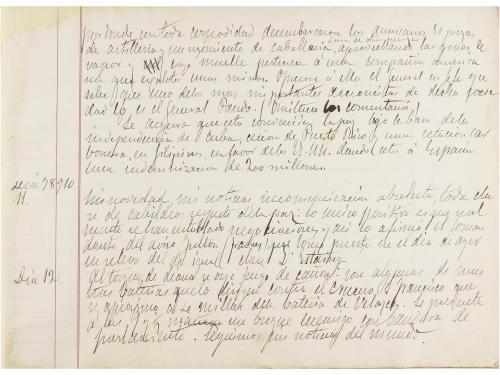 por donde con toda comodidad desembarcaron los americanos 80 piezas
de artilleria y un regimiento de caballeria, aprovechando las gruas de
vapor, cuyo muelle pertenece á una compañia america
na que explota unas minas. Opusose á ello el general
sabe, que uno de los mas importantes accionistas de dicha socie
dad lo es el General Pando. (Omitense los comentarios)
Se asegura que está convenida la paz bajo la base de la
independencia de Cuba, cesion de Puerto Rico y una estacion car
bonera en Filipinas en favor de los EE. UU. dando estos á España
una indemnizacion de 200 millones.
Dia 7 8 9 10
11.
Sin novedad, sin noticias, incomunicacion absoluta, toda cla
se de cabildeos respecto de la paz: lo unico positivo es que real
mente se han entablado negociaciones y asi lo afirmó el coman
dante del aviso que tomó puerto en el dia de ayer
en relevo del de igual clase D'Estaing.
Dia 12.
Al toque de diana se oye fuego de cañon: son algunas de nues
tras baterias que lo dirigen contra el crucero S. Francisco que
se aproximó á 2 millas de la bateria de Velazo. Se presenta
á las un buque enemigo con bandera de
parlamento. Seguimos sin noticias del mundo.